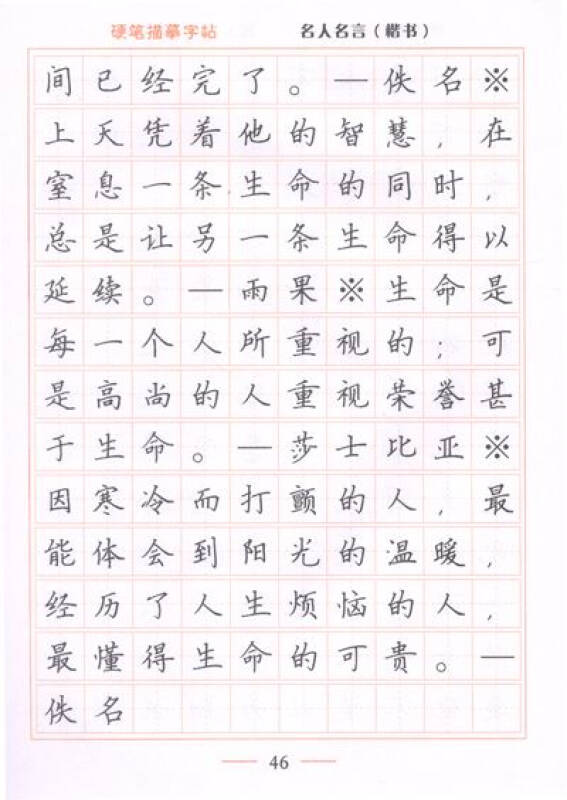 硬笔描摹字帖 名人名言（楷书）
间已经完了。—佚名※
上天凭着他的智慧，在
窒息一条生命的同时，
总是让另一条生命得以
延续。—雨果※生命是
每一个人所重视的；可
是高尚的人重视荣誉甚
于生命。—莎士比亚※
因寒冷而打颤的人，最
能体会到阳光的温暖，
经历了人生烦恼的人，
最懂得生命的可贵。—
佚名
46